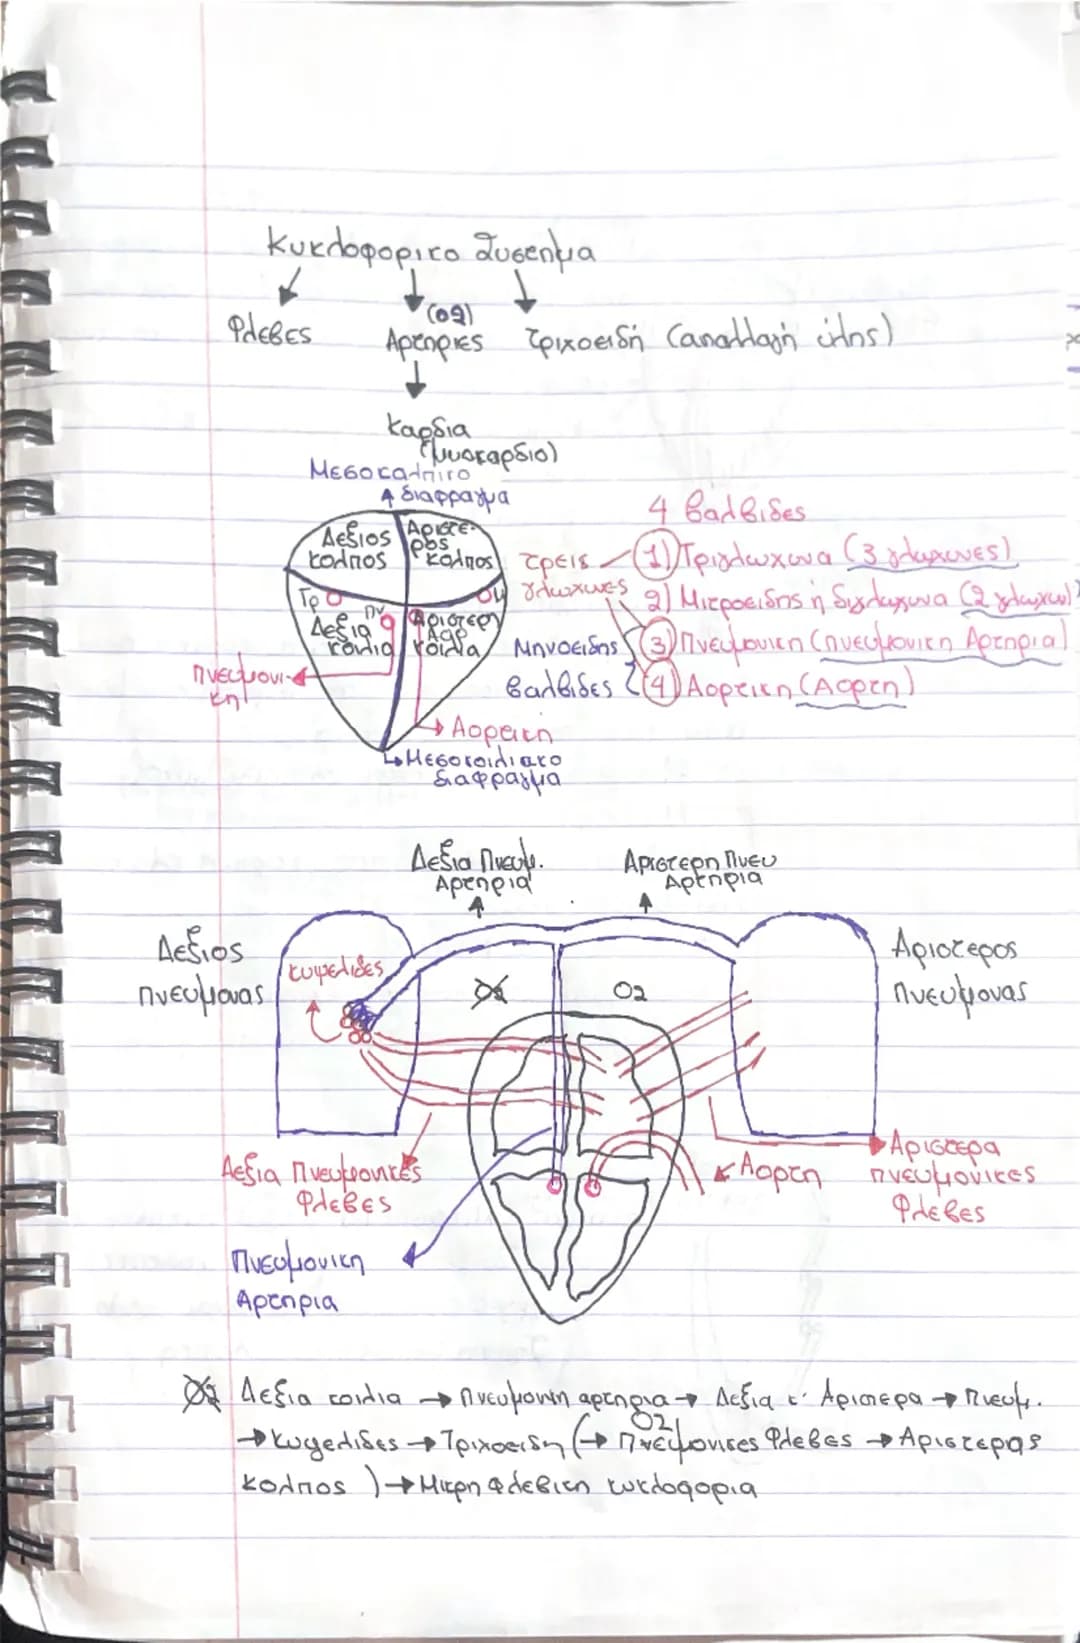 Κυκλοφορικο Συστημα
Φλεβες
(Ο2)
Αρτηριες
Τριχοειδή (ανταλλαγή ύλης)
Καρδια
(μυοκαρδιο)
Μεσοκολπικο
διαφραγμα
Δεξιος
κολπος
Αριστε-
ρος
κολπος
Τρ
Πν
Δεξια
κοιλια
Αριστερη
Αορ
κοιλια
Πνευμονι-
κη
Αορτικη
Μεσοκοιλιακο
διαφραγμα
4 βαλβιδες
τρεις
γλωχινες
1) Τριγλωχινα (3 γλωχινες)
2) Μιτροειδης ή διγλωχινα (2 γλωχιν)
Μηνοειδης
βαλβιδες
3) Πνευμονικη (πνευμονικη Αρτηρια)
4) Αορτικη (Αορτη)
Δεξια Πνευμ.
Αρτηρια
Αριστερη Πνευ
Αρτηρια
Δεξιος
πνευμονας
κυψελιδες
Ο2
Ο2
Αριστερος
Πνευμονας
Δεξια Πνευμονικές
Φλεβες
Αορτη
Αριστερα
πνευμονικες
Φλεβες
Πνευμονικη
Αρτηρια
Ο2 Δεξια κοιλια → Πνευμονικη αρτηρια → Δεξια κ' Αριστερα → Πνευμ.
Ο2
→ κυψελιδες → Τριχοειδη (→ Πνευμονικες Φλεβες → Αριστερας
κολπος ) → Μικρη Φλεβικη κυκλοφορια